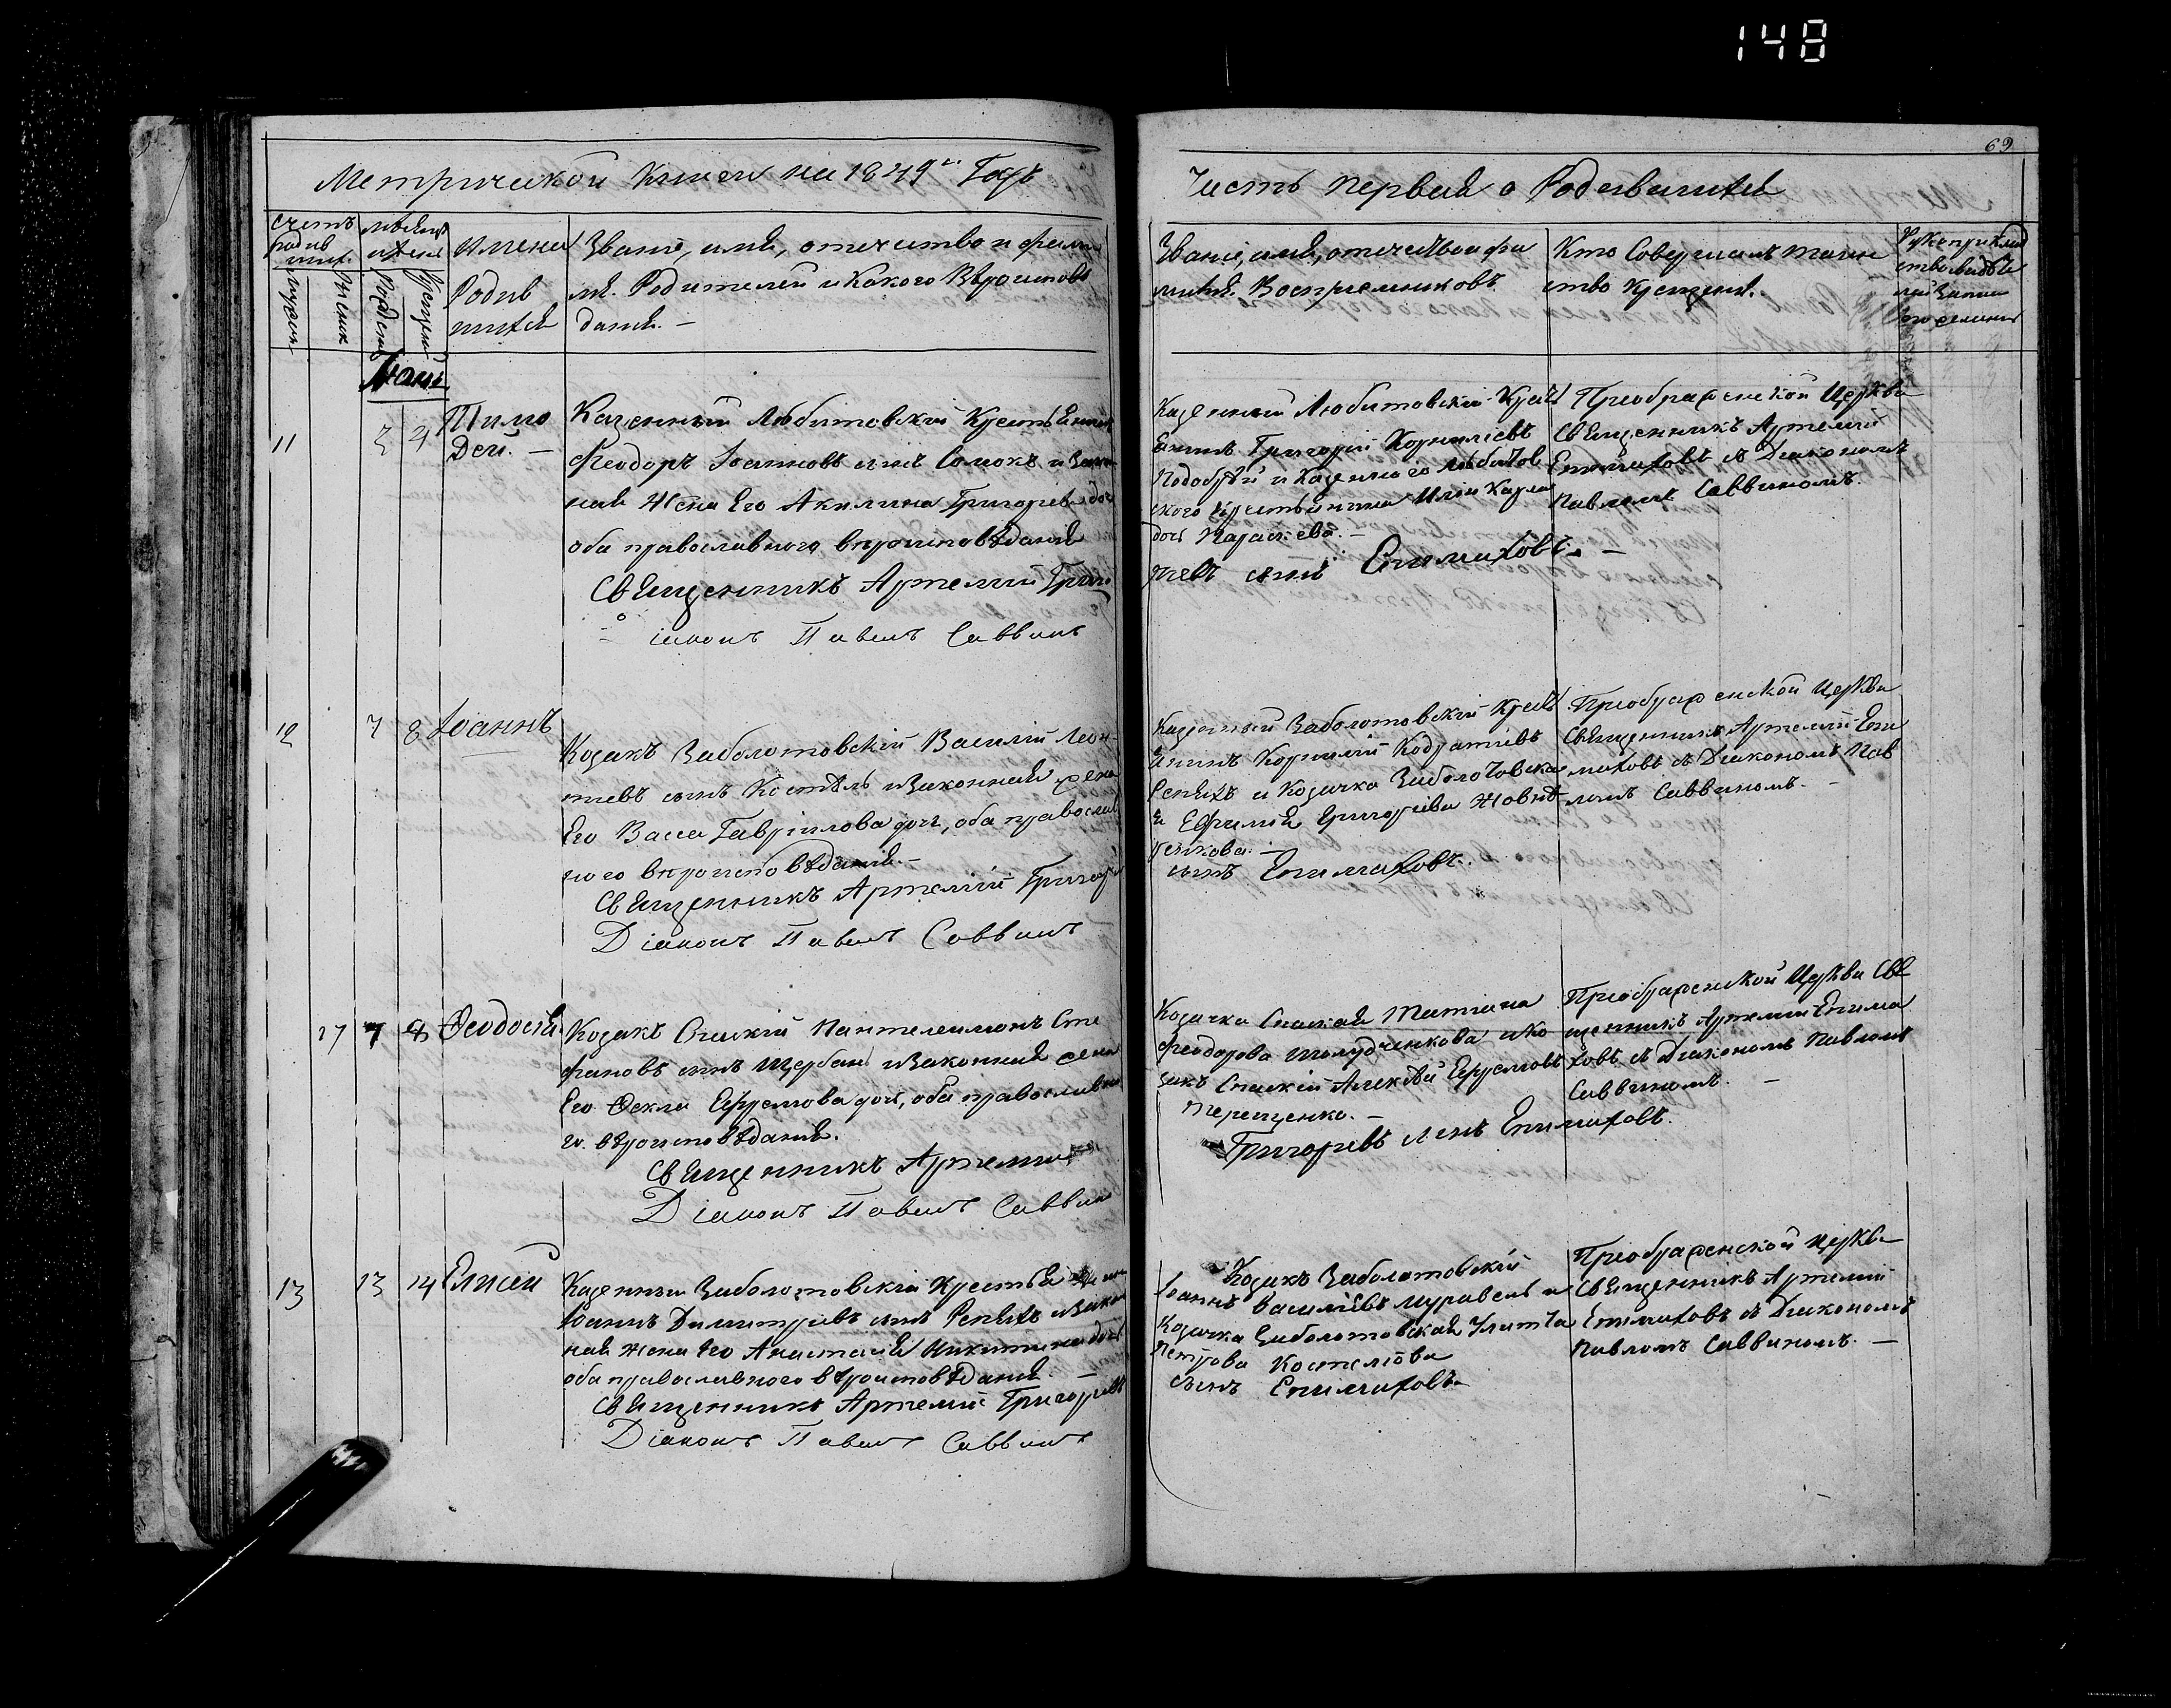 148
69
Метрической Книги на 1849й Годъ
Часть первая о Родившихся
Счетъ родив шихс.
мужск
женск
мѣсяцъ и день
Рожденія
Крещенія
Имена Родив шихся
Званіе, имя, отечество и фами
лія Родителей и Какого Вѣроисповѣ
данія. —
Званіе, имя, отечество и фа
милія Воспріемниковъ
Кто Совершалъ таин
ство Крещенія.
Рукоприклад
ство свидѣте
лей записи
по желанію
Маій
11
3
4
Тимо
ѳей. —
Казенный Любитовскій Крестьянинъ
Феодоръ Іоанновъ сынъ Сомокъ и Закон
ная Жена Его Акилина Григоріева доч
оба православнаго вѣроисповѣданія
Священникъ Артемій Григо
Діаконъ Павелъ Саввинъ
Казенный Любитовскій Крест
янинъ Григорій Корниліевъ
и Казеннаго Любитов
скаго Крестьянина Иліи
дочь Параскева. —
ріевъ сынъ Епимаховъ. —
Преображенской Церкви
Священникъ Артемій
Епимаховъ съ Діакономъ
Павломъ Саввиномъ.
12
7
8
Іоаннъ
Козакъ Заболотовскій Василій Леон
тіевъ сынъ Костель и Законная жена
Его Васса Гавріилова доч, оба православ
наго вѣроисповѣданія. —
Священникъ Артемій Григорі
Діаконъ Павелъ Саввинъ
Казенный Заболотовскій Крест
янинъ Корнилій Кодратіевъ
Репяхъ и Козачка Заболотовска
я Евфимія Григоріева Жовнѣ
ренкова. —
сынъ Епимаховъ.
Преображенской Церкви
Священникъ Артемій Епи
маховъ съ Діакономъ Пав
ломъ Саввиномъ. —
17
7
8
Ѳеодосія
Козакъ Спаскій Пантелеимонъ Сте
фановъ сынъ Щербакъ и Законная жена
Его Ѳекла Ефремова доч, оба православна
го вѣроисповѣданія.
Священникъ Артемій
Діаконъ Павелъ Саввинъ
Козачка Спаская Татіана
Феодорова Шолудченкова и Ко
закъ Спаскій Алексѣй Ефремовъ
Терещенко. —
Григоріевъ сынъ Епимаховъ.
Преображенской Церкви Свя
щенникъ Артемій Епима
ховъ съ Діакономъ Павломъ
Саввиномъ. —
13
13
14
Елисей
Казенный Заболотовскій Крестьянинъ
Іоаннъ Димитріевъ сынъ Репяхъ и Закон
ная жена его Анастасія Никитина доч
оба православнаго вѣроисповѣданія. —
Священникъ Артемій Григоріевъ
Діаконъ Павелъ Саввинъ
Козакъ Заболотовскій
Іоаннъ Василіевъ Муравель и
Козачка Заболотовская Улита
Петрова Костелева
сынъ Епимаховъ.
Преображенской Церкви
Священникъ Артемій
Епимаховъ съ Діакономъ
Павломъ Саввиномъ. —